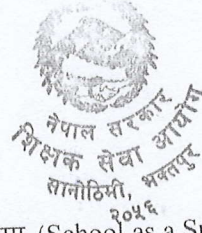 नेपाल सरकार
शिक्षक सेवा आयोग
सानोठिमी, भक्तपुर
२०५६
(School as a S